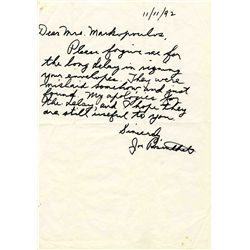 11/11/92
Dear Mrs. Markopoulos,
Please forgive me for
the long delay in signing
your envelopes. They were
mislaid somehow and just
found. My apologies for
the delay, and I hope they
are still useful to you.
Sincerely